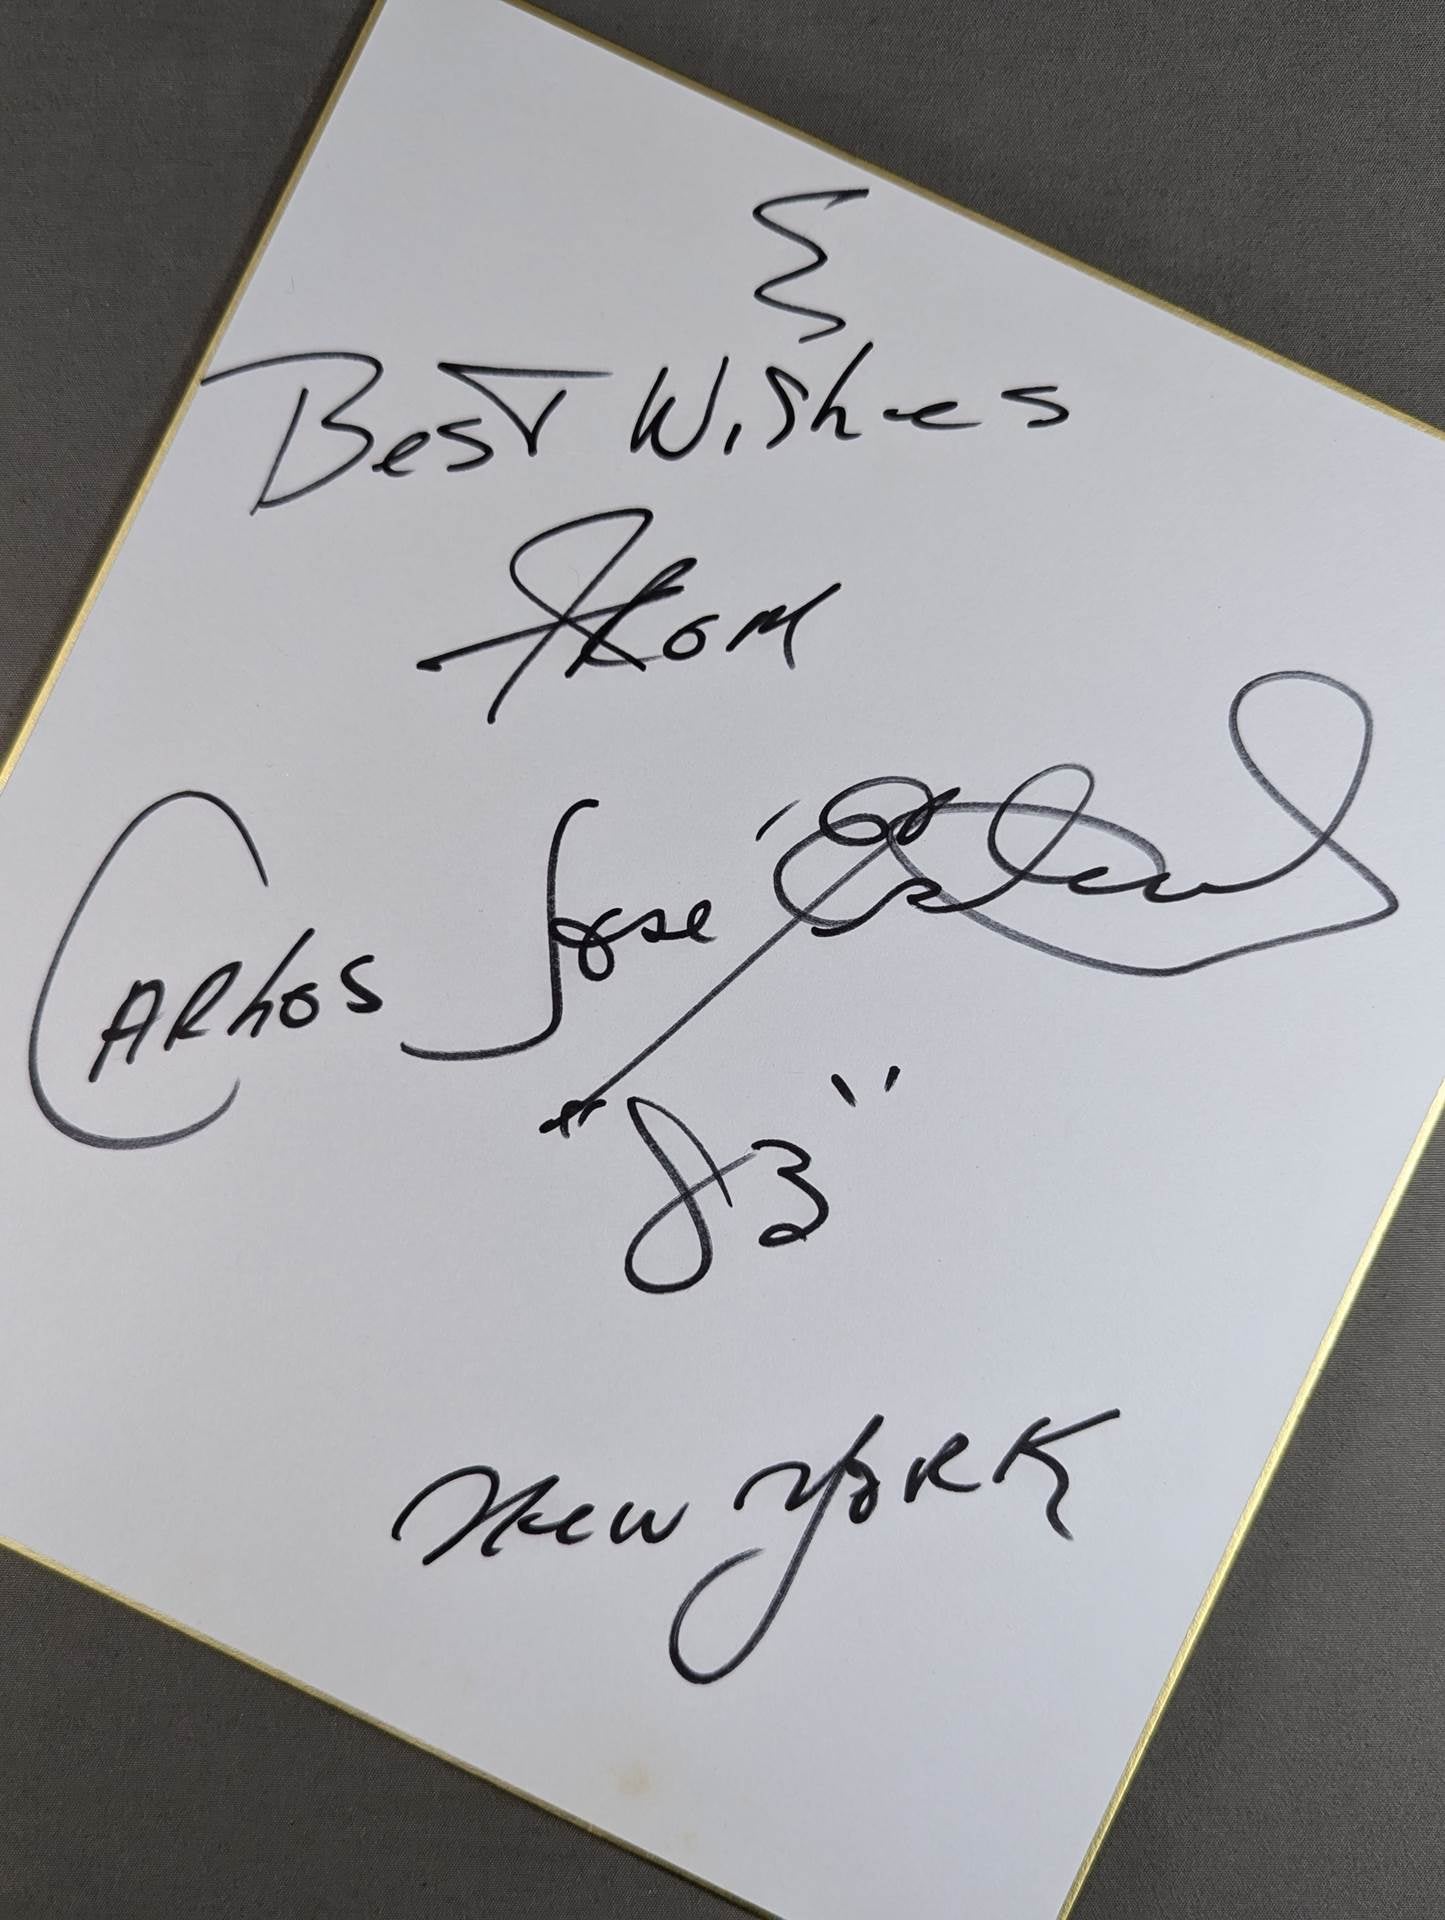 Best Wishes
From
CARlos Jose'
"83"
New YORK